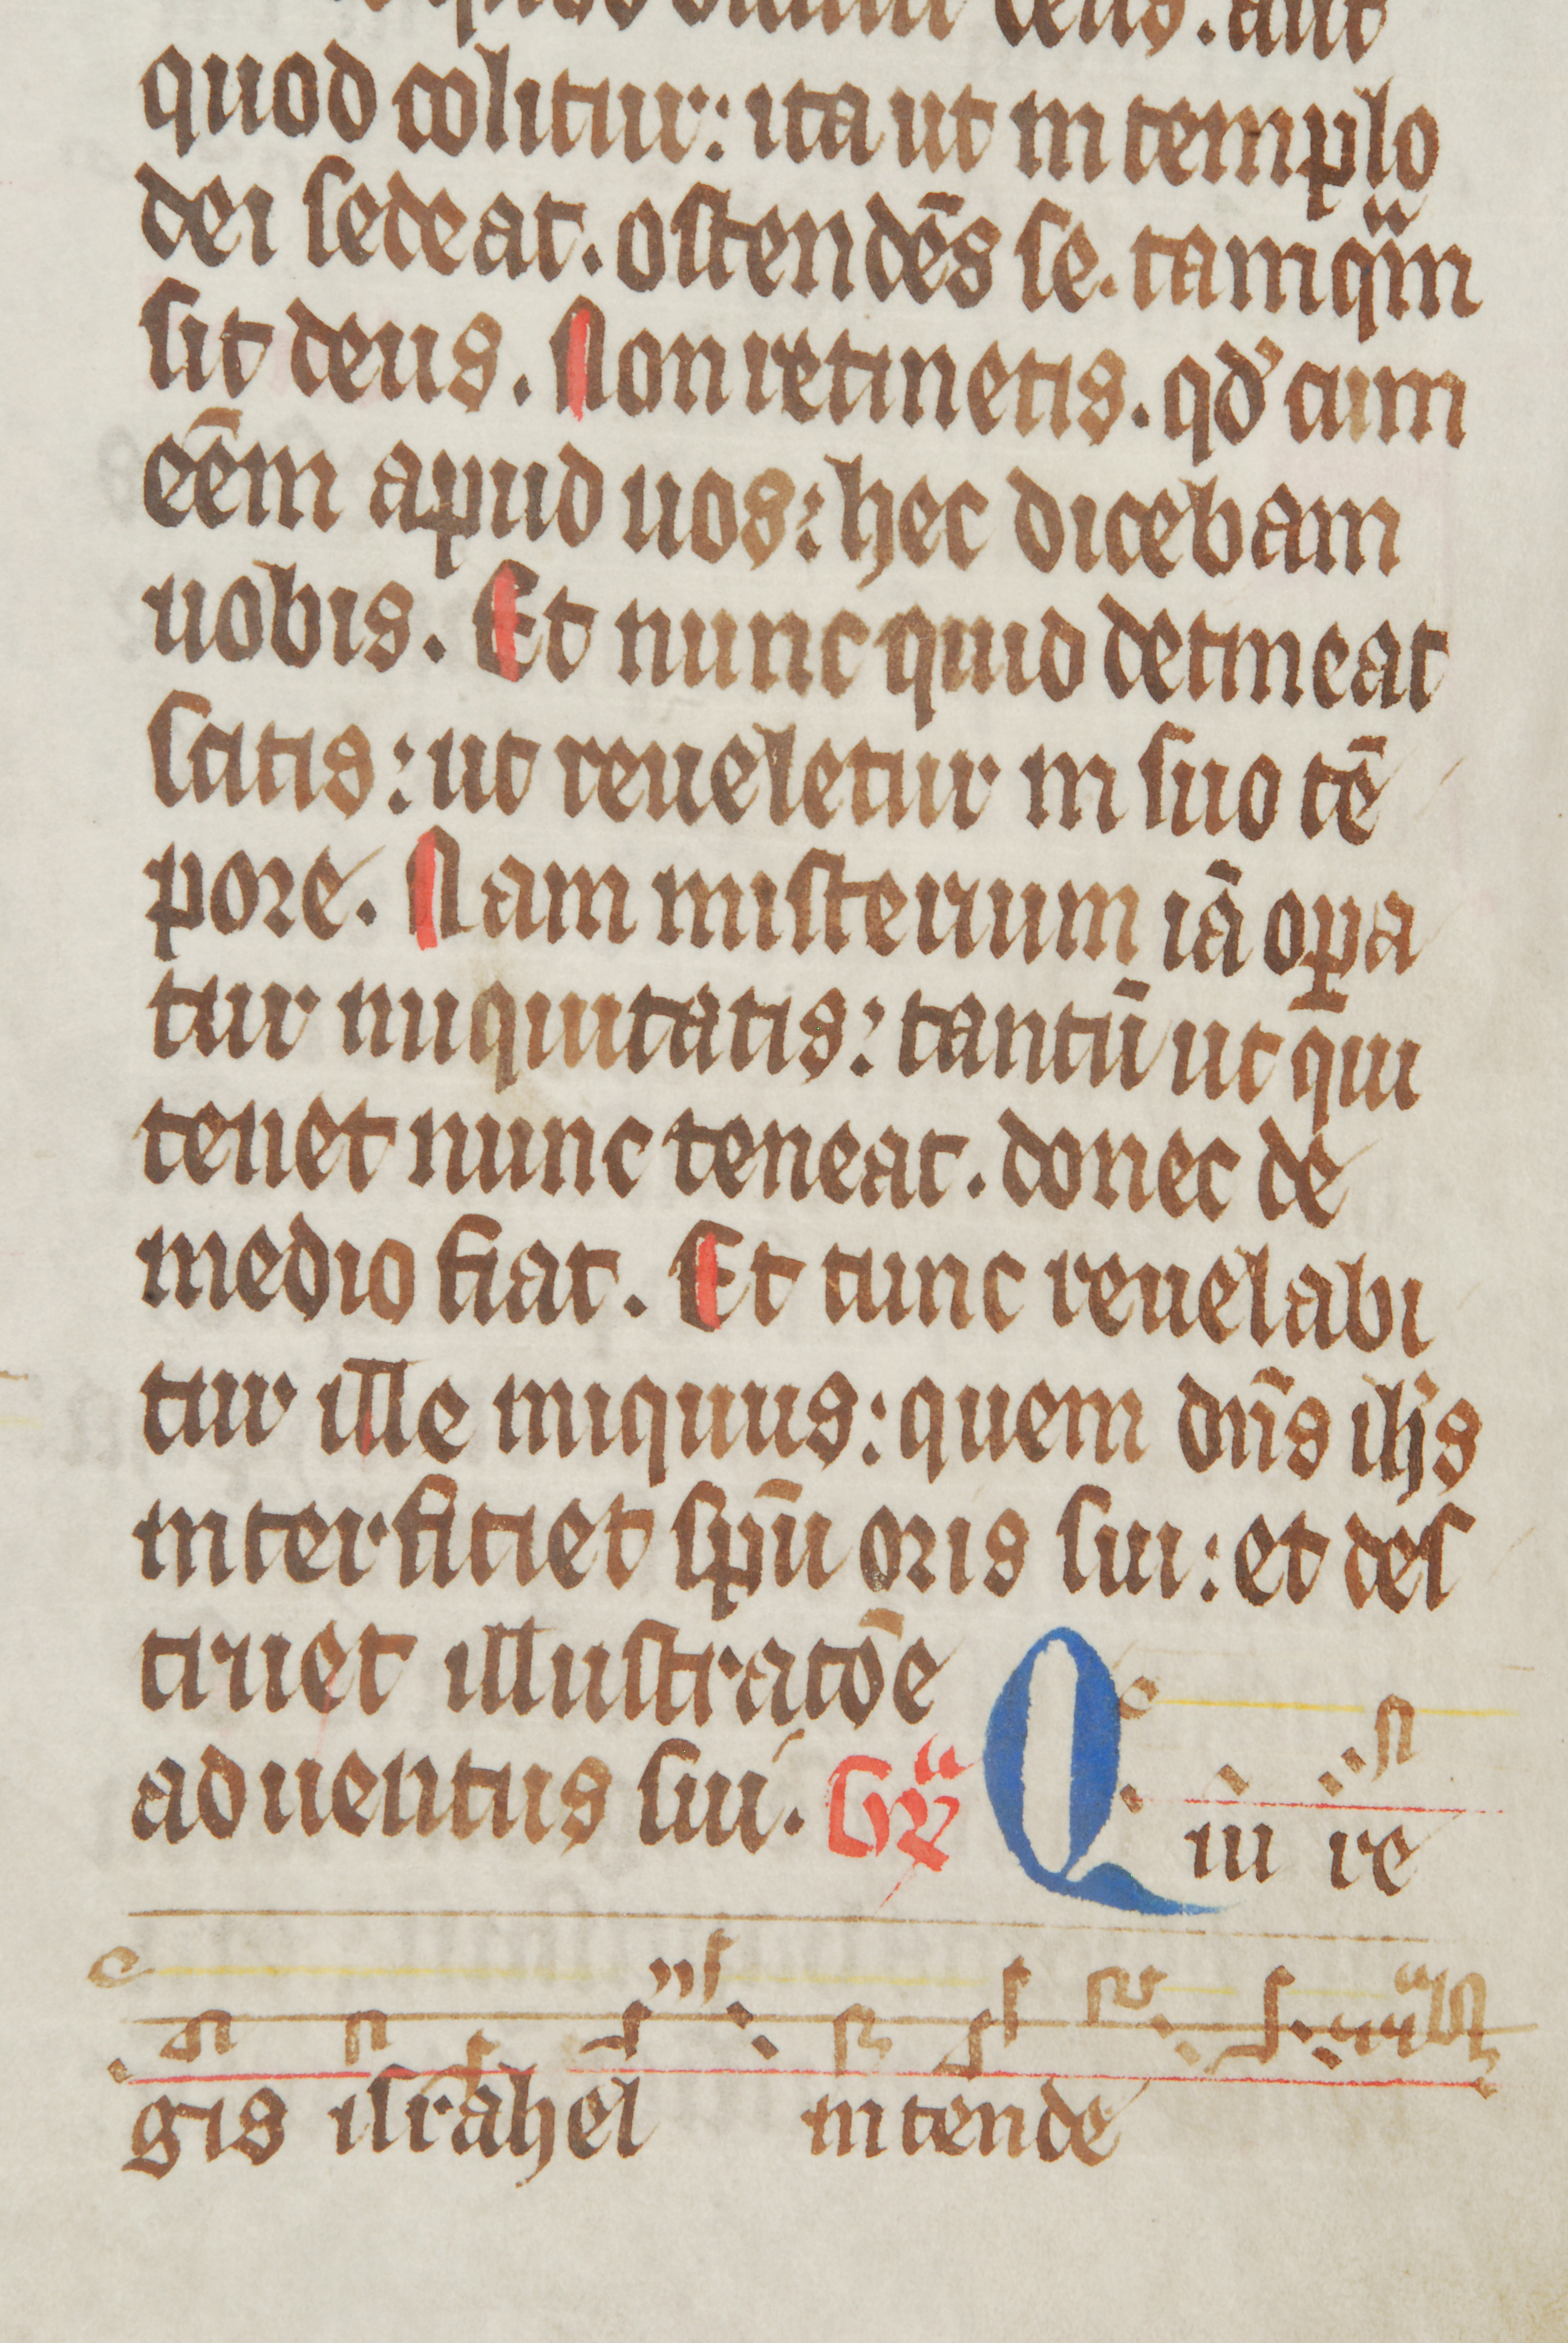 deus. aut
quod colitur: ita ut in templo
dei sedeat. ostendēs se. tamqm
sit deus. Non retinetis. qd' cum
eēm apud uos: hec dicebam
uobis. Et nunc quid detineat
scitis: ut reueletur in suo tē
pore. Nam misterium iā opa
tur iniquitatis: tantū ut qui
tenet nunc teneat. donec de
medio fiat. Et tunc reuelabi
tur ille iniquus: quem dn̄s ih's
interficiet spū oris sui: et des
truet illustratōe
aduentus sui. Gr̄ Qui re
gis israhel intende